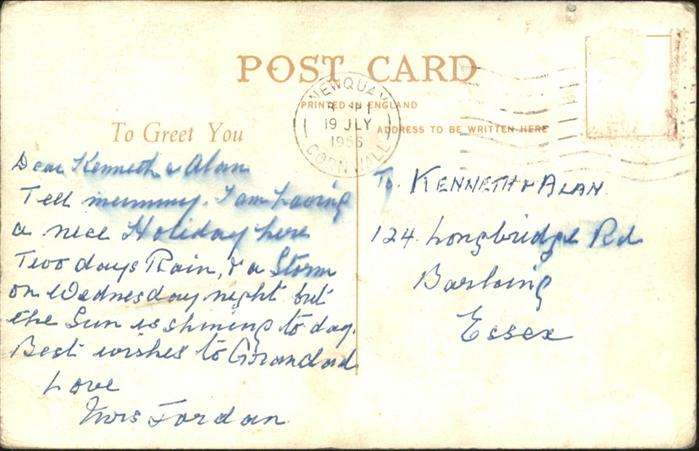 POST CARD
PRINTED IN ENGLAND
NEWQUAY
19 JLY
1956
CORNWALL
To Greet You
ADDRESS TO BE WRITTEN HERE
Dear Kenneth & Alan
Tell mummy. I am having
a nice Holiday here
Two days Rain, & a Storm
on Wednesday night but
the Sun is shining to day.
Best wishes to Grandad
Love
Mrs Jordan
To. KENNETH & ALAN.
124. Longbridge Rd
Barking
Essex